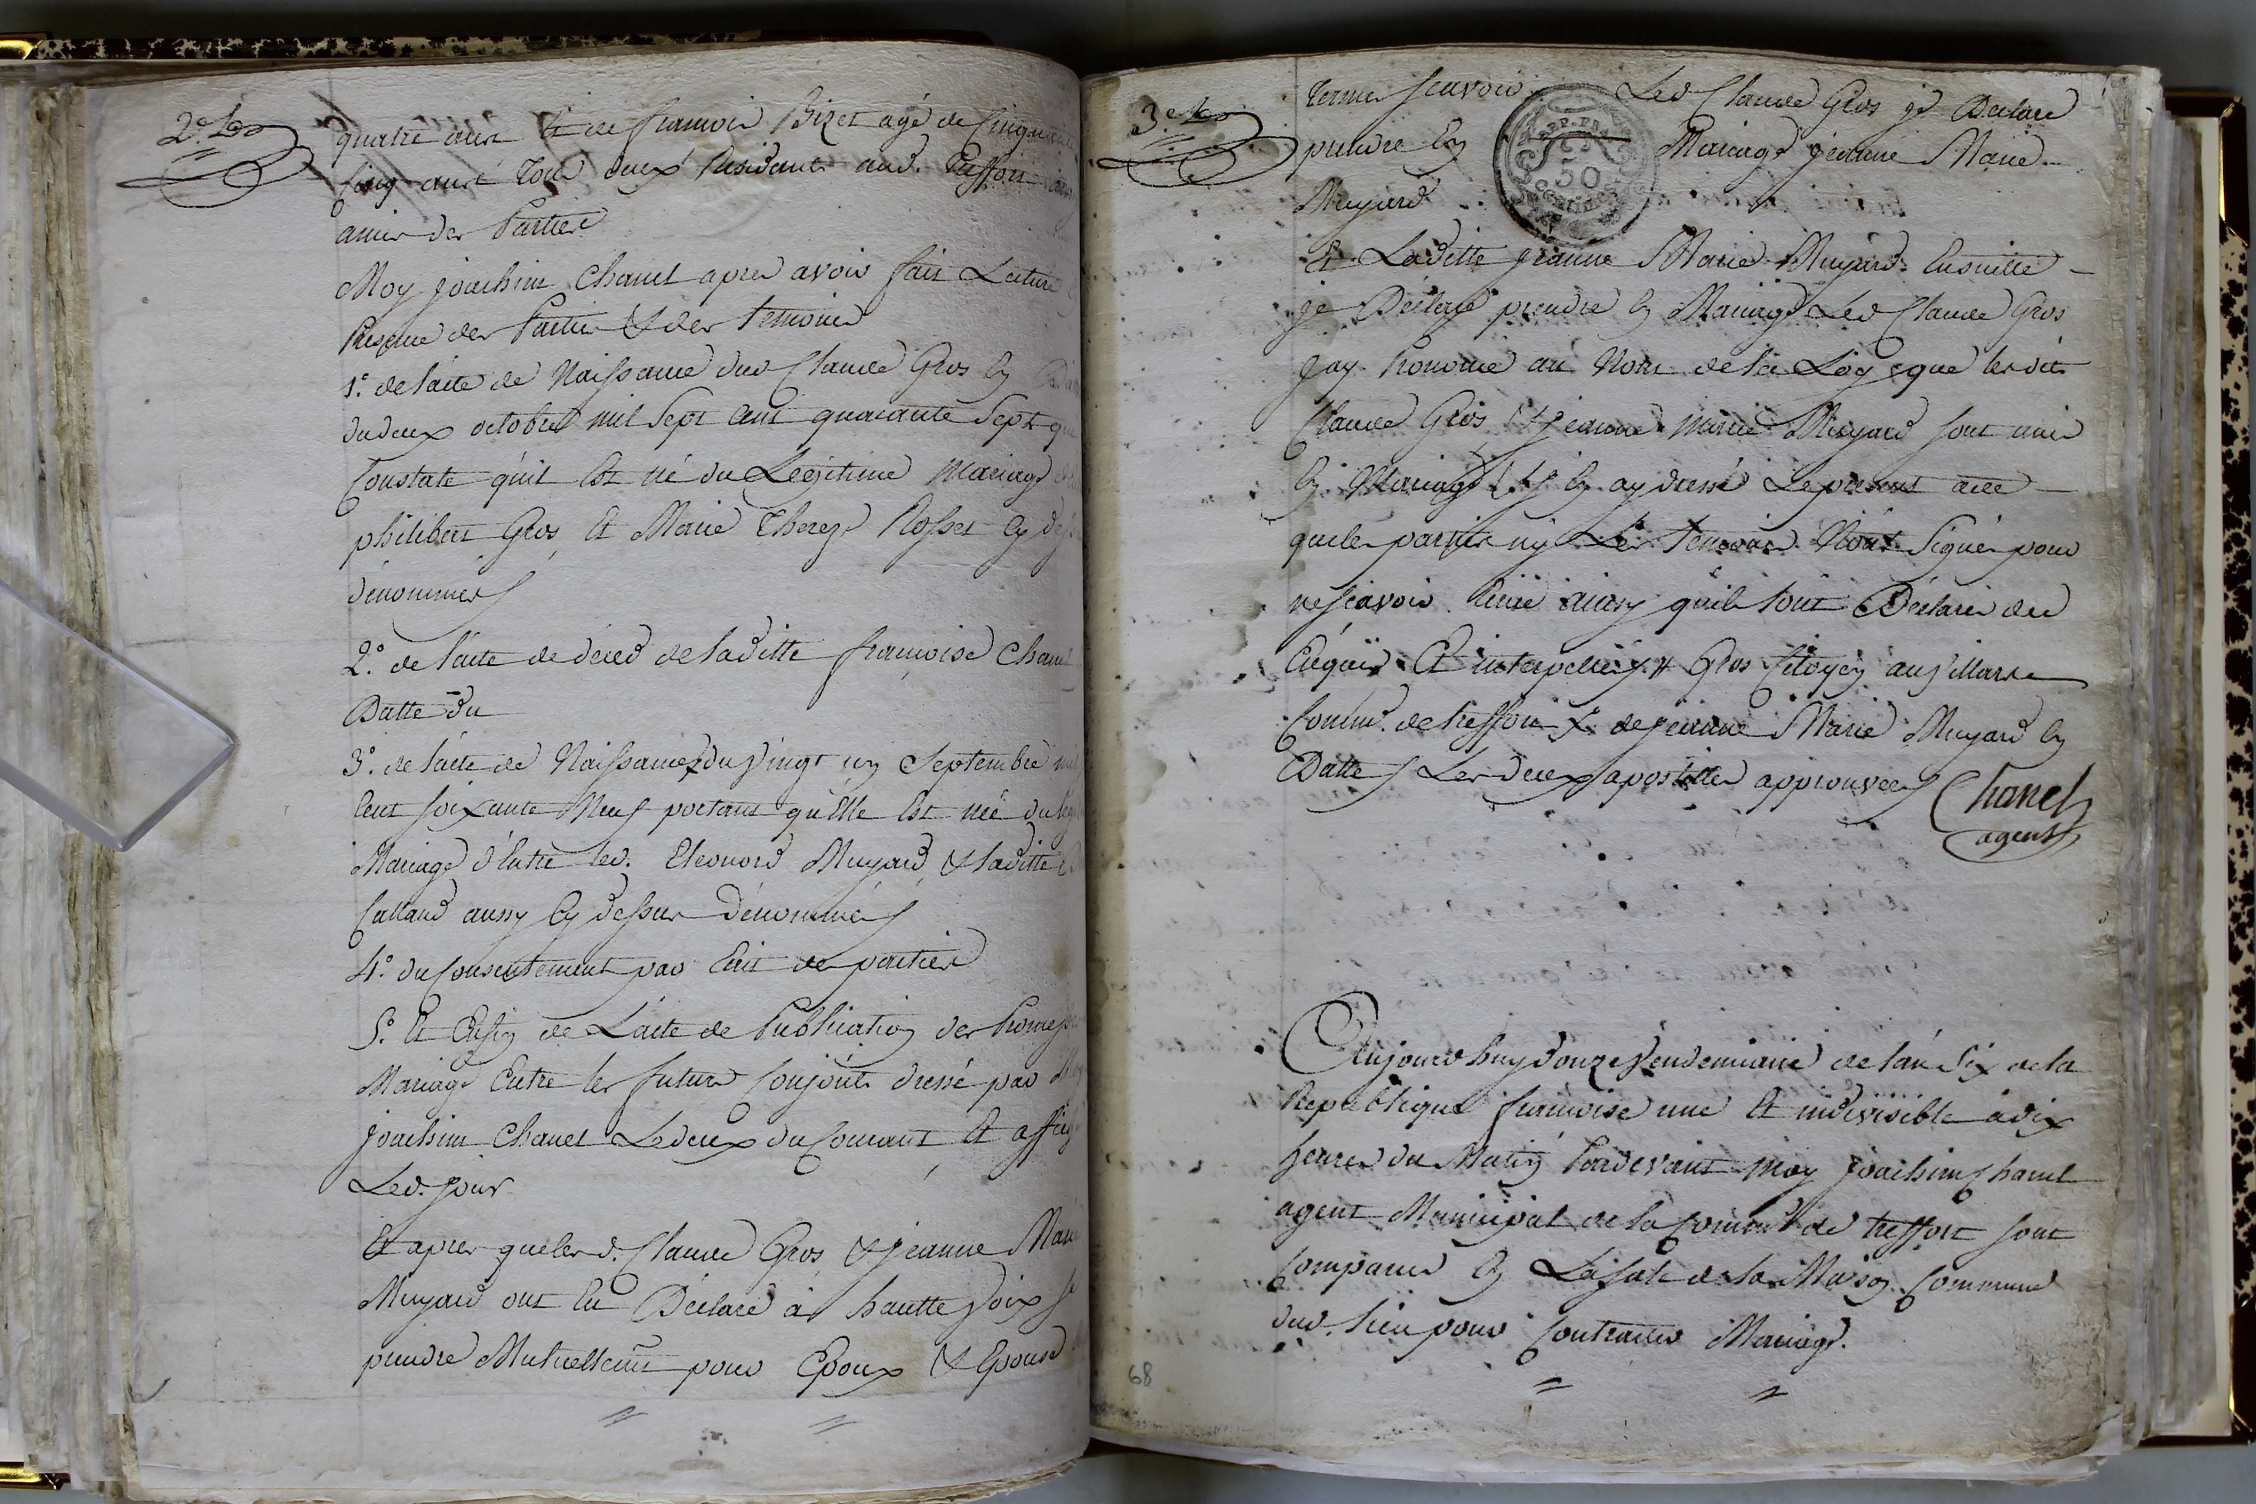 2e Ro
quatre ans Et de francois Bizet agé de Cinquante
Cinq ans Tous deux Residants aud. Treffort
amis des Parties
Moy joachim Chanel apres avoir fait Lecture
Presence des Parties & des temoins
1.° de lacte de Naissance dud Claude Gros Ey
du deux octobre mil sept Cent quarante sept
Constate quil Est né du Legitime Mariage
philibert Gros Et Marie Thereze Rosset Cy
dénommés
2.° de lacte de déces de laditte françoise Chanel
Datte Du
3.° de lacte de Naissance du Vingt un Septembre
Cent soixante Neuf portant qu'Elle Est née du
Mariage d'Entre led. Eleonord Muyard & laditte
Calland aussy Cy dessus Dénommés
4.° du Consentement par Ecrit des parties
5.° Et Enfin de L'acte de Publication des
Mariage Entre les futurs Conjoints dressé par
joachim Chanel Le deux du Courant Et
Led. jour
Et apres que les d. Claude Gros & jeanne
Muyard ont Eu Déclaré à hautte Voix
prendre Mutuellemt pour Epoux & Epouse
3e Ro
termes scavoir Led Claude Gros je Declare
prendre En Mariage jeanne Marie
Muyard
REP. FRA.
50
CENTIMES
Et Laditte jeanne Marie Muyard Ensuitte
je Déclare prendre En Mariage Led Claude Gros
jay Prononcé au Nom de la Loy que lesdits
Claude Gros & jeanne Marie Muyard sont unis
En Mariage Et j'En ay dressé Le present acte
que les parties ny Les temoins N'ont Signés pour
ne scavoir Ecrire ainsy quils l'ont Déclaré de ce
Enquis Et interpellés # Gros Citoyen au Villars
Commé. de treffort X de jeanne Marie Muyard En
Datte Les deux apostilles approuvées
Chanel
agent
Aujourdhuy douze Vendemiaire de l'an Six de la
Republique francoise une Et indivisible à dix
heures du Matin Pardevant Moy Joachim Chanel
agent Municipal de la Commé de treffort sont
Comparus En La Sale de la Maison Commune
dud. lieu pour Contracter Mariage.
68